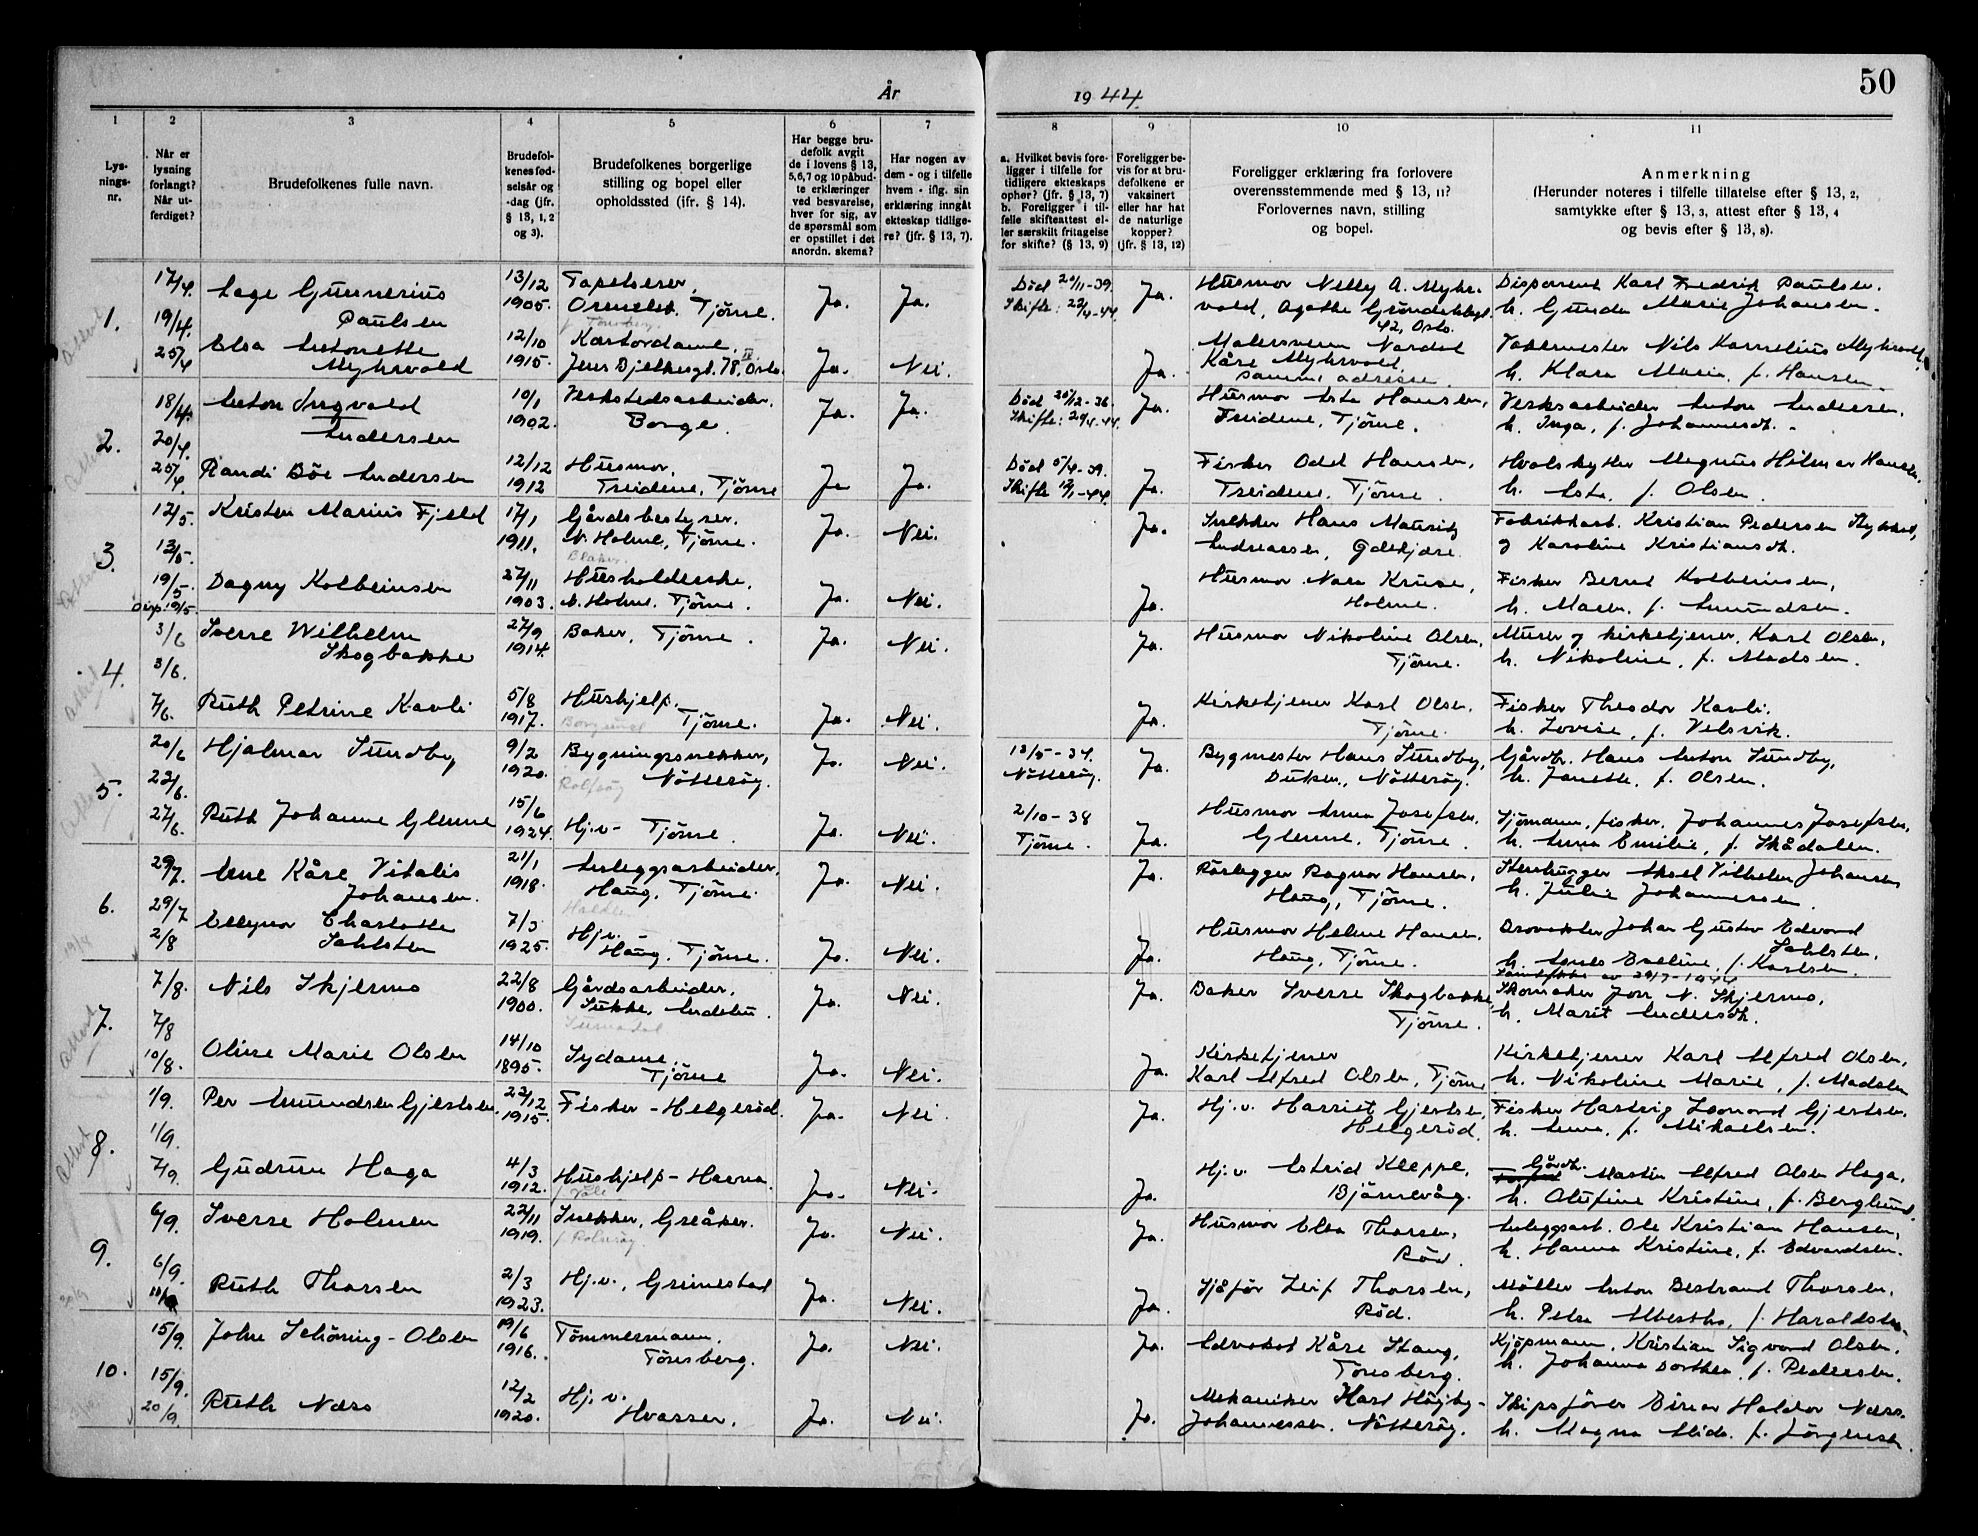 50
År
1944.
1
2
3
4
5
6
7
8
9
10
11
Lys-
nings-
nr.
Når er
lysning
forlangt?
Når ut-
ferdiget?
Brudefolkenes fulle navn.
Brudefol-
kenes fød-
selsår og
-dag (jfr.
§ 13, 1, 2
og 3).
Brudefolkenes borgerlige
stilling og bopel eller
opholdssted (ifr. § 14).
Har begge bru-
defolk avgit
de i lovens § 13,
5, 6, 7 og 10 påbud-
te erklæringer
ved besvarelse,
hver for sig, av
de spørsmål som
er opstillet i det
anordn. skema?
Har nogen av
dem - og i tilfelle
hvem - iflg. sin
erklæring inngåt
ekteskap tidlige-
re? (jfr. § 13, 7).
a. Hvilket bevis fore-
ligger i tilfelle for
tidligere ekteskaps
ophør? (jfr. § 13, 7)
b. Foreligger i til-
felle skifteattest el-
ler særskilt fritagelse
for skifte? (§ 13, 9)
Foreligger be-
vis for at bru-
defolkene er
vaksinert
eller har hat
de naturlige
kopper?
(jfr. § 13, 12)
Foreligger erklæring fra forlovere
overensstemmende med § 13, 11?
Forlovernes navn, stilling
og bopel.
Anmerkning
(Herunder noteres i tilfelle tillatelse efter § 13, 2,
samtykke efter § 13, 3, attest efter § 13, 4
og bevis efter § 13, 8).
1.
17/4.
19/4.
25/4
Aage Gunnerius
Paulsen
13/12
1905.
Tapetserer,
Ormelet, Tjöme.
f. Tönsberg.
Ja.
Ja.
Död 20/11-39.
Skifte: 22/4-44.
Ja.
Husmor Nelly A. Myhr-
vold, Agathe Gröndahlsgt.
42, Oslo.
Disponent Karl Fredrik Paulsen.
h. Gunda Marie Johansen.
Elsa Antonette
Myhrvold
12/10
1915.
Kontordame.
Jens Bjelkesgt. 78, IV. Oslo.
Ja.
Nei.
Ja.
Malersvenn Nordal
Kåre Myhrvold.
samme adresse.
Nils Kornelius Myhrvold.
h. Klara Marie, f. Hansen.
2.
18/4.
20/4.
25/4.
Anton Ingvald
Andersen
10/1
1902.
Verkstedsarbeider.
Borge.
Ja.
Ja.
Död 26/12-36.
Skifte: 29/4-44.
Ja.
Husmor Asta Hansen,
Treidene, Tjöme.
Verksarbeider Anton Andersen.
h. Inga, f. Johannesdt.
Randi Böe Andersen
12/12
1912
Husmor.
Treidene, Tjöme
Ja
Ja.
Död 5/4-39.
Skifte 12/1-44.
Ja.
Fisker Odd Hansen,
Treidene, Tjöme.
Hvalskytter Magnus Hilmar Hansen.
h. Asta, f. Olsen.
3.
12/5.
13/5.
19/5.
Disp. 19/5.
Kristen Marius Fjeld
17/1
1911.
Gårdsbestyrer.
N. Holme, Tjöme.
Blaker.
Ja.
Nei.
Ja.
Snekker Hans Mauritz
Andreassen, Gdekjære
Fabrikkarb. Kristian Pedersen
og Karoline Kristiansdt.
Dagny Kolbeinsen
27/11
1903.
Husholderske,
N. Holme, Tjöme.
Ja.
Nei.
Ja.
Husmor Kruse,
Holme.
Fisker Bernt Kolbeinsen,
h. Maren, f. Amundsen.
4.
3/6
3/6.
7/6.
Sverre Wilhelm
Skogbakke
27/9
1914.
Baker, Tjöme.
Ja.
Nei.
Ja.
Husmor Nikoline Olsen,
Tjöme.
Murer og kirketjener, Karl Olsen,
h. Nikoline, f. Madsen.
Ruth Petrine Kavli
5/8
1917.
Hushjelp.
Borgund Tjöme.
Ja.
Nei.
Ja.
Kirketjener Karl Olsen.
Tjöme.
Fisker Theodor Kavli.
h. Lovise, f. Velsvik.
5.
20/6
22/6.
27/6.
Hjalmar Sundby
9/2
1920.
Bygningssnekker,
Nötteröy.
Rolfsöy
Ja.
Nei.
13/5-34.
Nötteröy.
Ja.
Bygmester Hans Sundby,
Duken, Nötteröy.
Gårdbr. Hans Anton Sundby,
h. Janette, f. Olsen.
Ruth Johanne Glenne
15/6
1924.
Hj.v- Tjöme.
Ja.
Nei.
2/10-38
Tjöme.
Ja.
Husmor Anna Josefsen.
Glenne, Tjöme.
Sjömann, fisker, Johannes Josefsen,
h. Anna Emilie, f. Skådalen.
6.
29/7.
29/7
2/8
Arne Kåre Vitalis
Johansen.
21/1
1918.
Anleggsarbeider,
Haug, Tjöme.
Halden
Ja.
Nei.
Ja.
Rörlegger Ragnar Hansen,
Haug, Tjöme.
Stenhugger Aksel Vilhelm Johansen
h. Julie Johannessen.
Ellynor Charlotte
Sahlsten
7/3
1925.
Hj.v. -
Haug, Tjöme.
Ja.
Nei.
Ja.
Husmor Helene Hansen.
Haug, Tjöme.
Johan Gustav Edvard
Sahlsten,
h. Agnes Eveline, f. Karlsen.
Samtykke av 29/7-1944
7.
7/8.
7/8
10/8.
Nils Skjermo
22/8
1900.
Gårdsarbeider.
Sukke, Andebu.
Surnadal
Ja.
Nei.
Ja.
Baker Sverre Skogbakke,
Tjöme.
Skomaker Jon N. Skjermo,
h. Marit Andersdt.
Oline Marie Olsen
14/10
1895.
Sydame.
Tjöme
Ja.
Nei.
Ja.
Kirketjener
Karl Alfred Olsen, Tjöme
Kirketjener Karl Alfred Olsen,
h. Nikoline Marie, f. Madsen
8.
1/9.
1/9.
7/9.
Per Amundsen Gjertsen
22/12
1915.
Fisker - Helgeröd.
Ja.
Nei.
Ja.
Hj.v. Harriet Gjertsen,
Helgeröd.
Fisker Hartvig Leonard Gjertsen.
h. Anna, f. Mikaelsen.
Gudrun Haga
4/3
1912.
Hushjelp - Havna.
f. Våle
Ja.
Nei.
Ja.
Hj.v. Astrid Kleppe,
Björnevåg.
Gårdbr.
Martin Alfred Olsen Haga,
h. Olufine Kristine, f. Berglund.
9.
6/9.
6/9.
11/9
Sverre Holmen
22/11
1919.
Snekker, Greåker.
f. Rolvsöy.
Ja.
Nei.
Ja.
Husmor Elsa Thorsen,
Röd.
Anleggsarb. Ole Kristian Hansen,
h. Hanna Kristine, f. Edvardsen.
Ruth Thorsen
2/3
1923.
Hj.v., Grimestad
Ja.
Nei.
Ja.
Sjåför Leif Thorsen,
Röd.
Möller Anton Bertrand Thorsen,
h. Petra Albertha, f. Haraldsen.
10.
15/9.
15/9.
20/9.
John Schöning-Olsen
19/6
1916.
Tömmermann.
Tönsberg.
Ja.
Nei.
Ja.
Advokat Kåre Stang,
Tönsberg.
Kjöpmann, Kristian Sigvard Olsen.
h. Johanna Dorthea, f. Pedersen.
Ruth Næss
12/2
1920.
Hj.v.
Hvasser.
Ja.
Nei.
Ja.
Mekaniker Karl Höyby-
Johannessen. Nötteröy.
Skipsförer Einar Haldor Næss.
h. Magna Alida. f. Jörgensen.